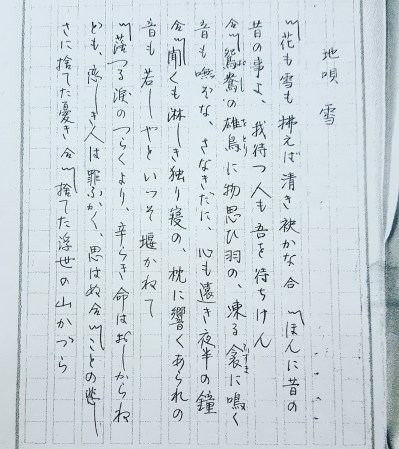 地唄 雪
〽花も雪も拂えば清き袂かな合〽ほんに昔の
昔の事よ、我待つ人も吾を待ちけん
合〽鴛鴦の雄鳥に物思ひ羽の、凍る衾に鳴く
音も嘸ぞな、さなきだに、心も遠き夜半の鐘
合〽聞くも淋しき独り寝の、枕に響くあられの
音も若しやといつそ堰かねて
〽落つる涙のつらくより、辛らき命はおしからね
ども、恋しき人は罪ふかく、思はぬ合〽ことの悲し
さに捨てた憂き合〽捨てた浮世の山かづら